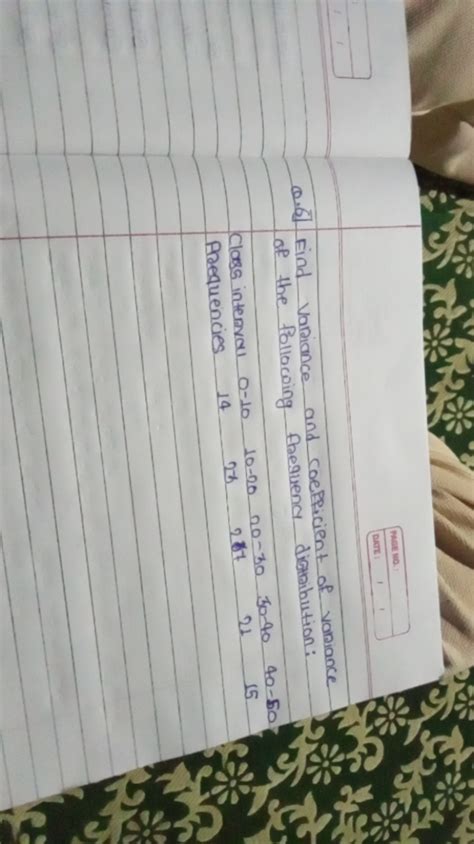 PAGE NO.:
DATE: / /
Q.6] Find Variance and coefficient of variance
of the following frequency distribution:
Class interval 0-10 10-20 20-30 30-40 40-50
Frequencies 14 21
15